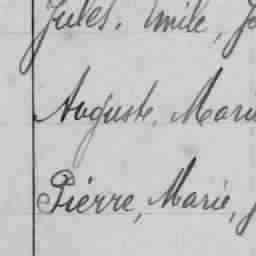 Jules, Emile, Jo
Auguste, Marie
Pierre, Marie, J